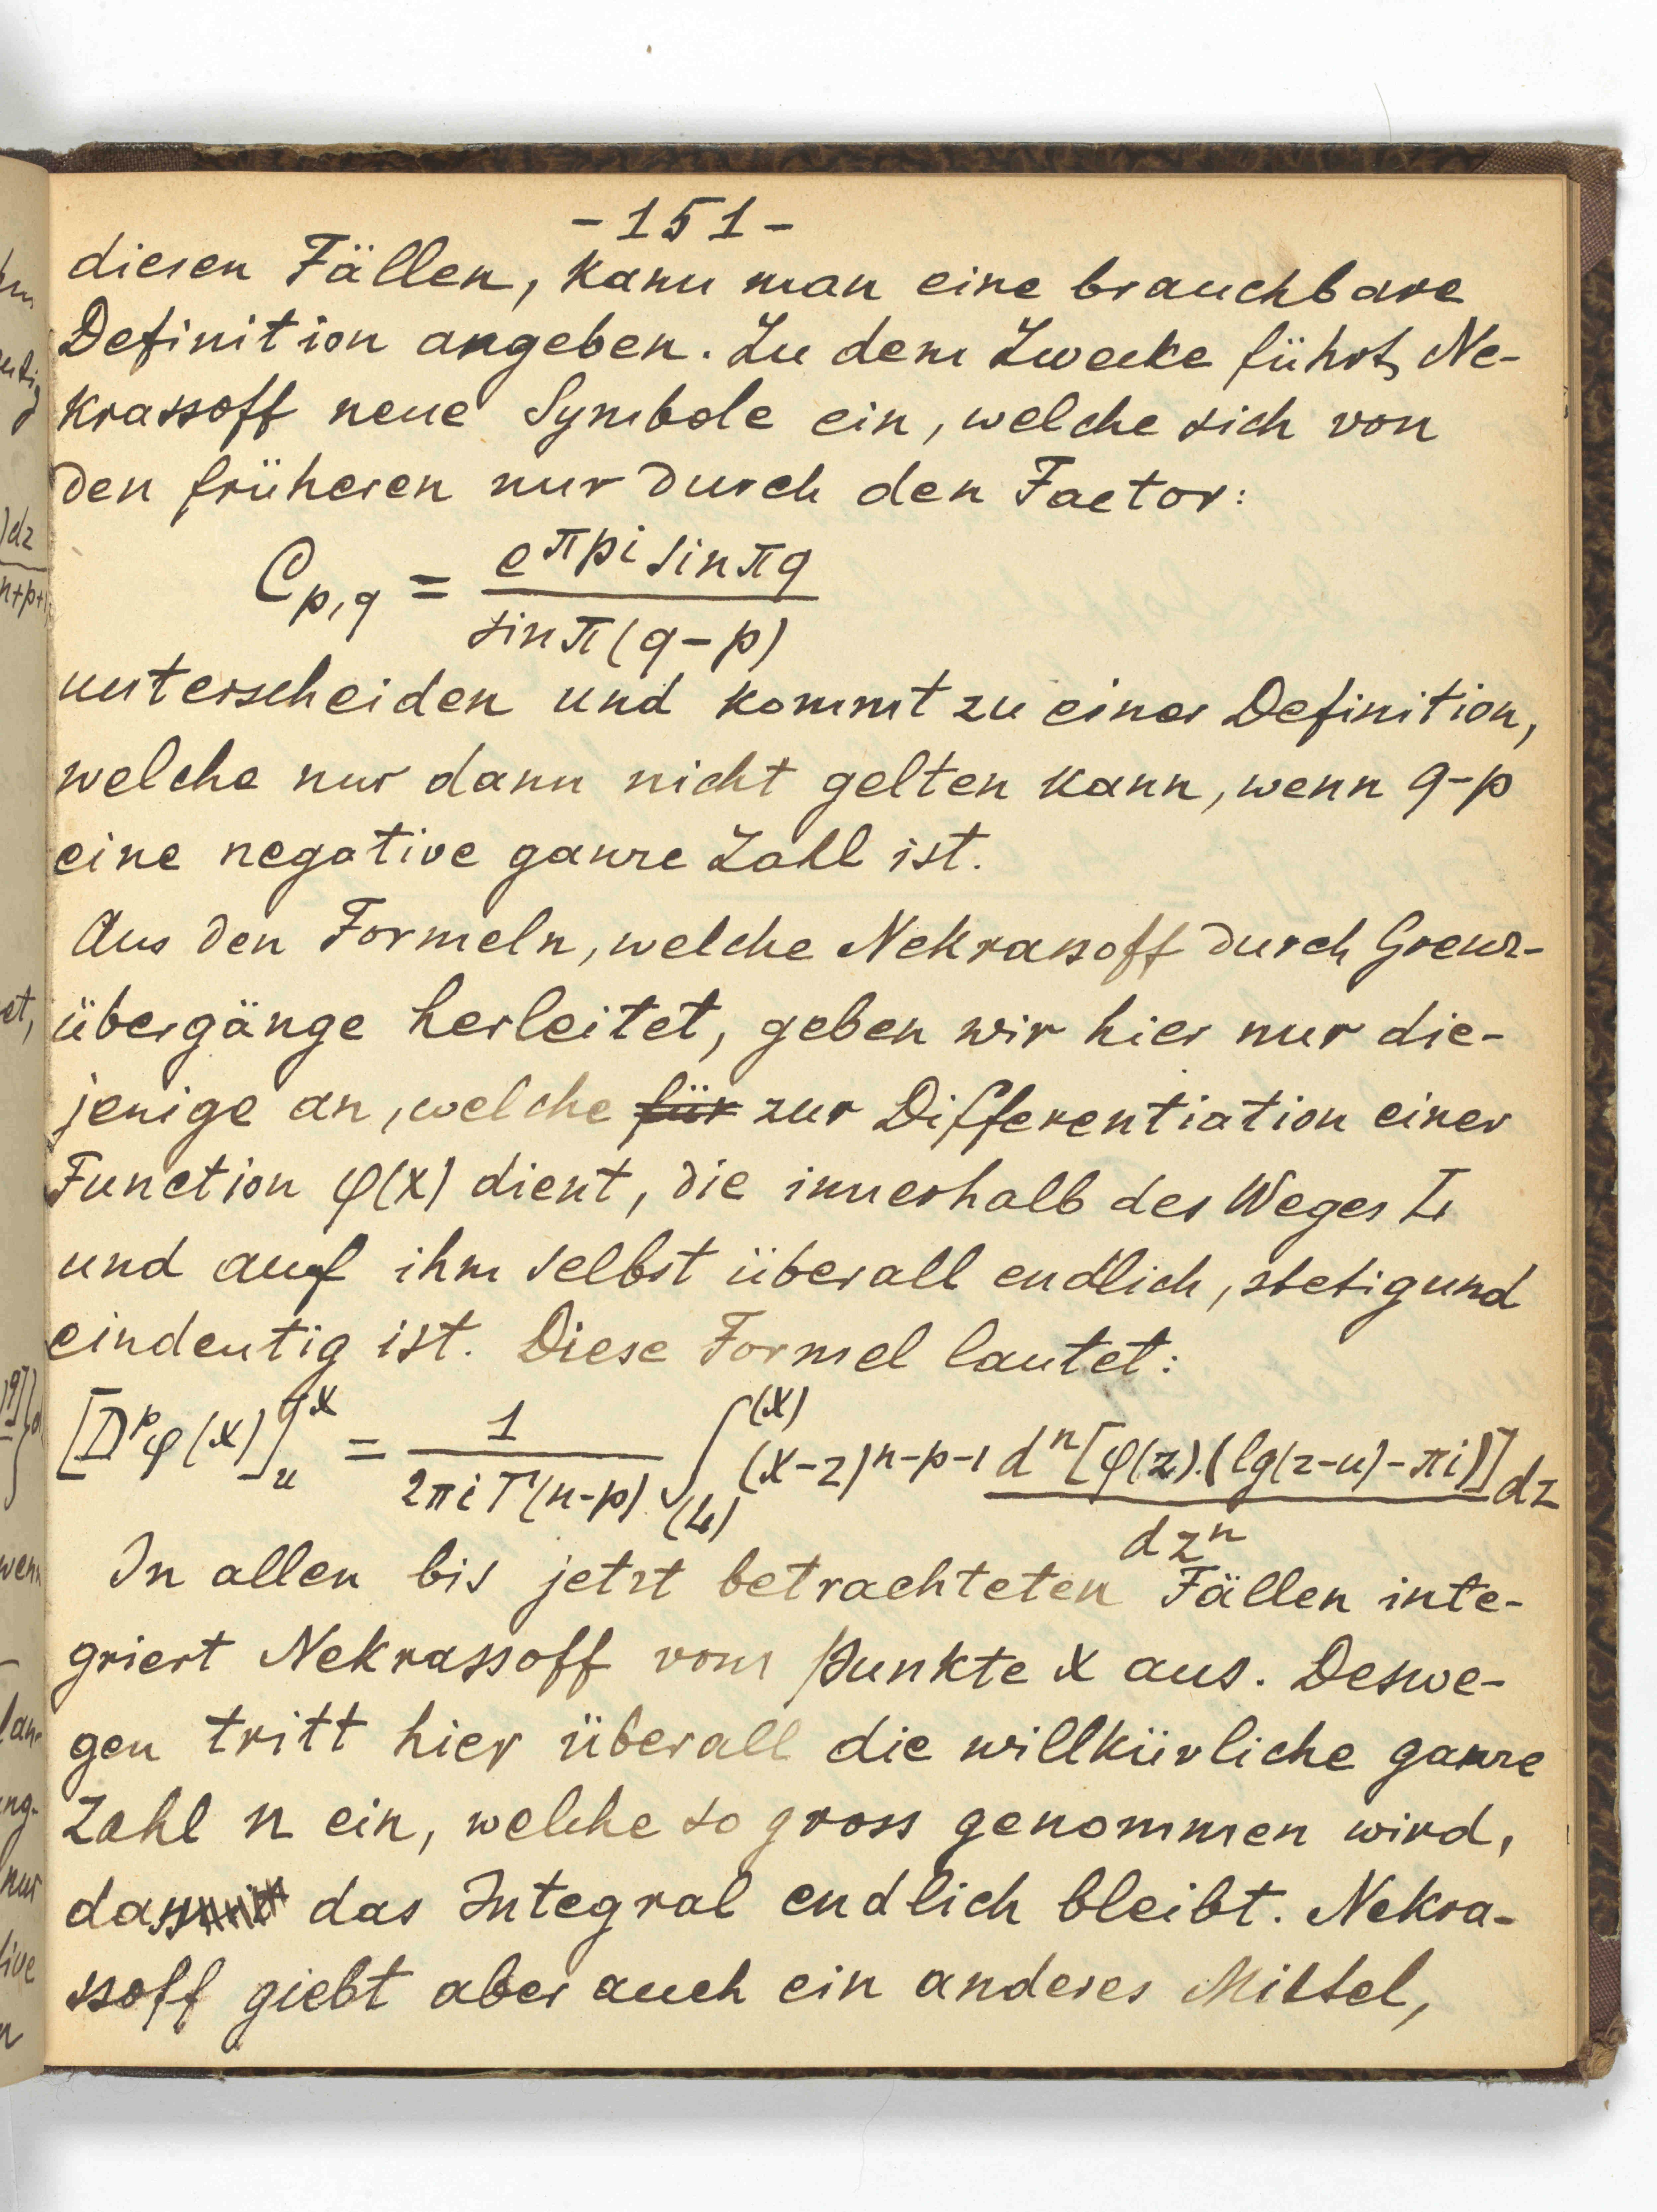 - 151 -
diesen Fällen, kann man eine brauchbare
Definition angeben. Zu dem Zwecke führt Ne-
krassoff neue Symbole ein, welche sich von
den früheren nur durch den Factor:
C_{p,q} = \frac{e^{πpi} sin πq}{sin π(q-p)}
unterscheiden und kommt zu einer Definition,
welche nur dann nicht gelten kann, wenn q-p
eine negative ganze Zahl ist.
Aus den Formeln, welche Nekrassoff durch Grenz-
übergänge herleitet, geben wir hier nur die-
jenige an, welche für zur Differentiation einer
Function φ(x) dient, die innerhalb des Weges L
und auf ihm selbst überall endlich, stetig und
eindeutig ist. Diese Formel lautet:
[D^p φ(x)]_u^x = \frac{1}{2πi Γ(n-p)} ∫_{(L)}^{(x)} (x-z)^{n-p-1} \frac{d^n[φ(z).(lg(z-u)-πi)]}{dz^n} dz
In allen bis jetzt betrachteten Fällen inte-
griert Nekrassoff vom Punkte x aus. Deswe-
gen tritt hier überall die willkürliche ganze
Zahl n ein, welche so gross genommen wird,
dass das Integral endlich bleibt. Nekra-
ssoff giebt aber auch ein anderes Mittel,